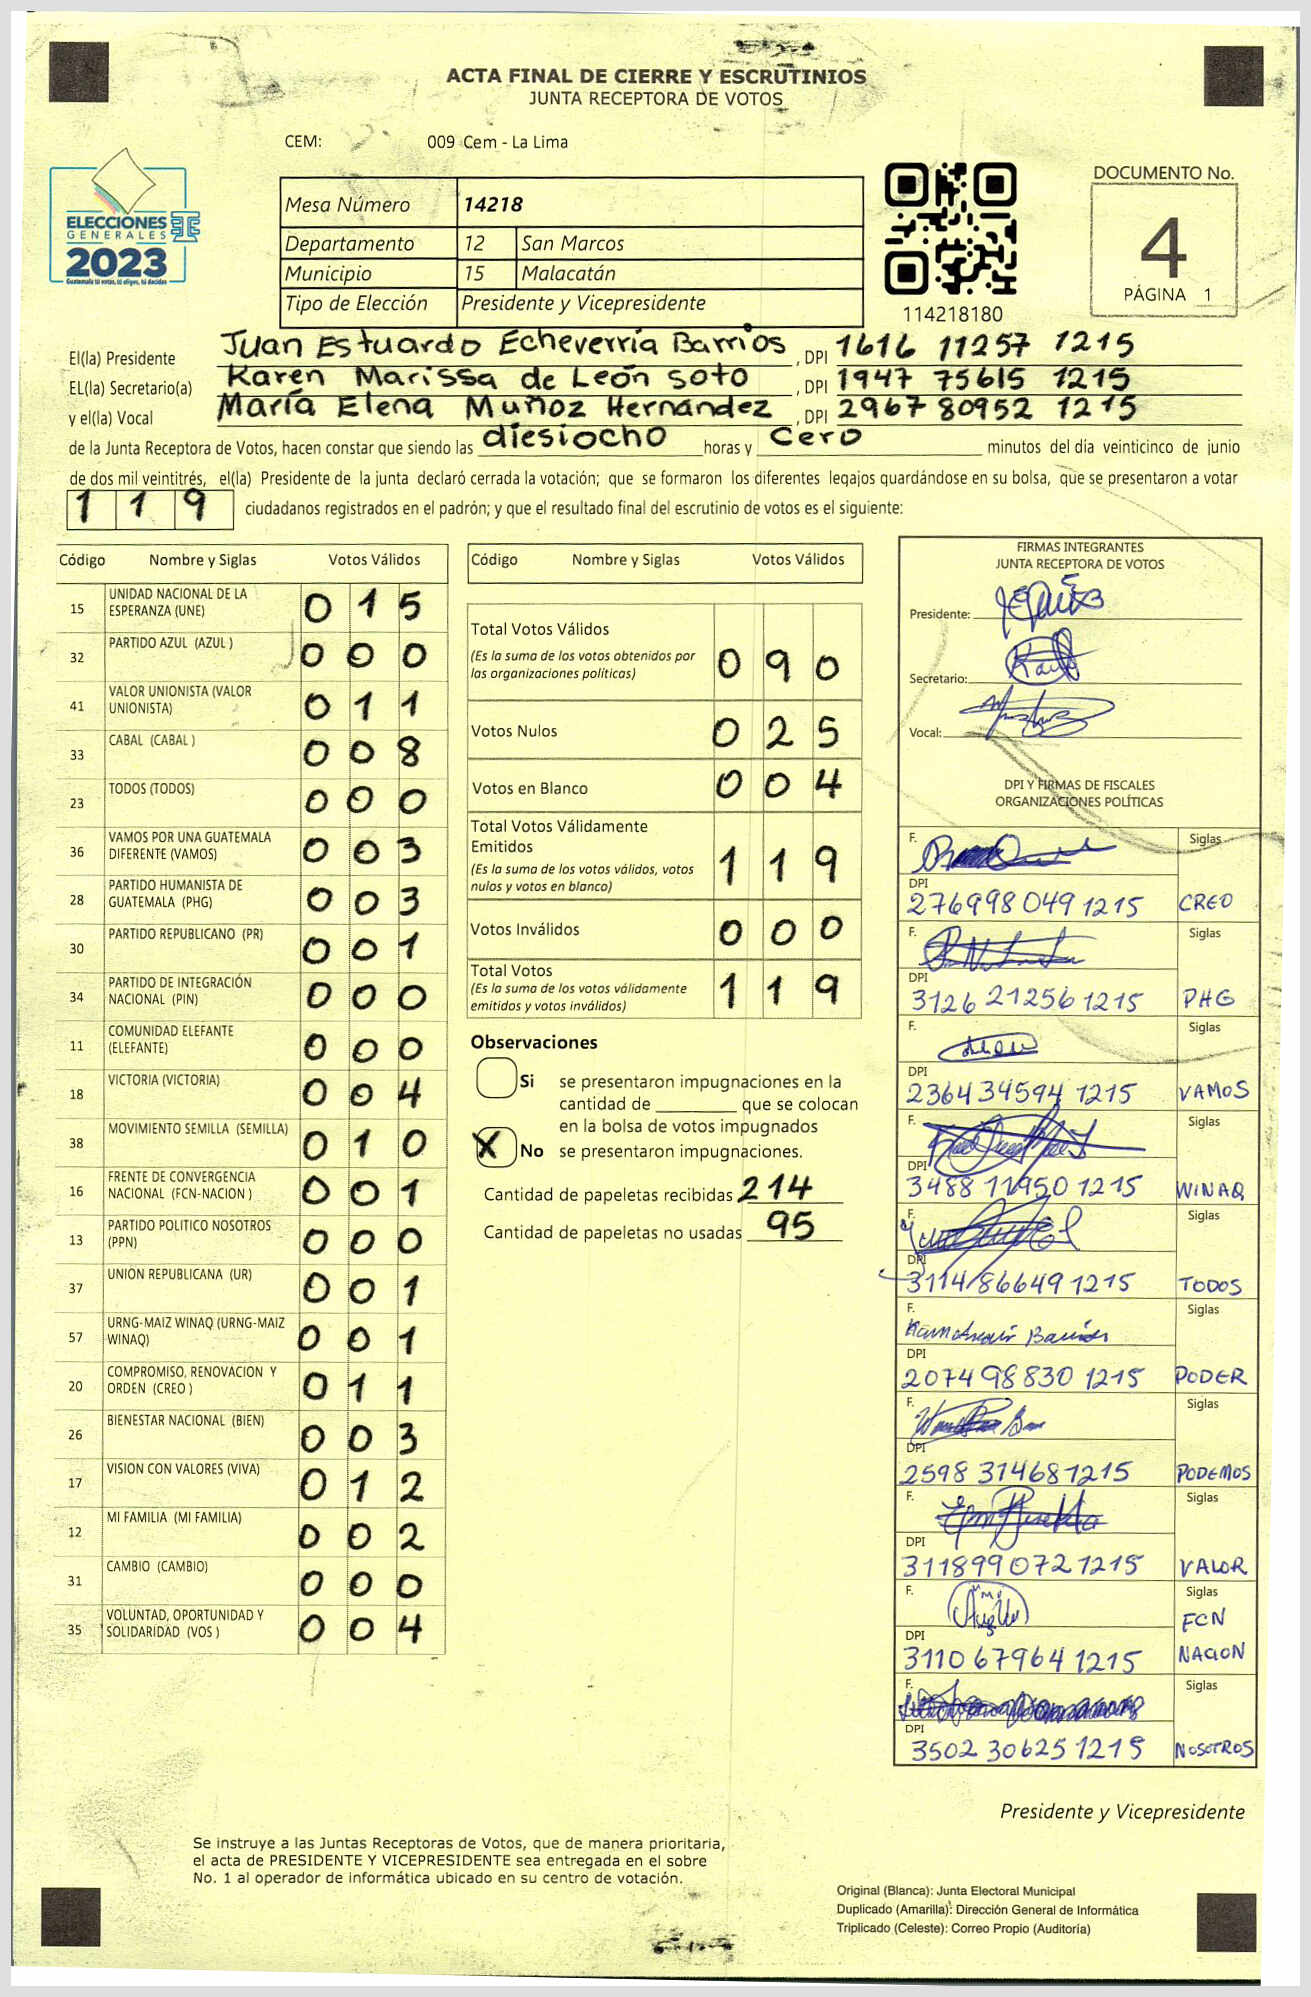 ACTA FINAL DE CIERRE Y ESCRUTINIOS
JUNTA RECEPTORA DE VOTOS
CEM: 009 Cem - La Lima
ELECCIONES
GENERALES
2023
Guatemala tú votas, tú eliges, tú decides
Mesa Número 14218
Departamento 12 San Marcos
Municipio 15 Malacatán
Tipo de Elección Presidente y Vicepresidente
114218180
DOCUMENTO No.
4
PÁGINA 1
El(la) Presidente Juan Estuardo Echeverría Barrios , DPI 1616 11257 1215
EL(la) Secretario(a) Karen Marissa de León Soto , DPI 1947 75615 1215
y el(la) Vocal María Elena Muñoz Hernández , DPI 2967 80952 1215
de la Junta Receptora de Votos, hacen constar que siendo las diesiocho horas y Cero minutos del día veinticinco de junio
de dos mil veintitrés, el(la) Presidente de la junta declaró cerrada la votación; que se formaron los diferentes legajos guardándose en su bolsa, que se presentaron a votar
1 1 9 ciudadanos registrados en el padrón; y que el resultado final del escrutinio de votos es el siguiente:
Código Nombre y Siglas Votos Válidos
15 UNIDAD NACIONAL DE LA
ESPERANZA (UNE) 0 1 5
32 PARTIDO AZUL (AZUL ) 0 0 0
41 VALOR UNIONISTA (VALOR
UNIONISTA) 0 1 1
33 CABAL (CABAL ) 0 0 8
23 TODOS (TODOS) 0 0 0
36 VAMOS POR UNA GUATEMALA
DIFERENTE (VAMOS) 0 0 3
28 PARTIDO HUMANISTA DE
GUATEMALA (PHG) 0 0 3
30 PARTIDO REPUBLICANO (PR) 0 0 1
34 PARTIDO DE INTEGRACIÓN
NACIONAL (PIN) 0 0 0
11 COMUNIDAD ELEFANTE
(ELEFANTE) 0 0 0
18 VICTORIA (VICTORIA) 0 0 4
38 MOVIMIENTO SEMILLA (SEMILLA) 0 1 0
16 FRENTE DE CONVERGENCIA
NACIONAL (FCN-NACION ) 0 0 1
13 PARTIDO POLITICO NOSOTROS
(PPN) 0 0 0
37 UNION REPUBLICANA (UR) 0 0 1
57 URNG-MAIZ WINAQ (URNG-MAIZ
WINAQ) 0 0 1
20 COMPROMISO, RENOVACION Y
ORDEN (CREO ) 0 1 1
26 BIENESTAR NACIONAL (BIEN) 0 0 3
17 VISION CON VALORES (VIVA) 0 1 2
12 MI FAMILIA (MI FAMILIA) 0 0 2
31 CAMBIO (CAMBIO) 0 0 0
35 VOLUNTAD, OPORTUNIDAD Y
SOLIDARIDAD (VOS ) 0 0 4
Código Nombre y Siglas Votos Válidos
Total Votos Válidos
(Es la suma de los votos obtenidos por
las organizaciones políticas) 0 9 0
Votos Nulos 0 2 5
Votos en Blanco 0 0 4
Total Votos Válidamente
Emitidos
(Es la suma de los votos válidos, votos
nulos y votos en blanco) 1 1 9
Votos Inválidos 0 0 0
Total Votos
(Es la suma de los votos válidamente
emitidos y votos inválidos) 1 1 9
Observaciones
Si se presentaron impugnaciones en la
cantidad de ________ que se colocan
en la bolsa de votos impugnados
X No se presentaron impugnaciones.
Cantidad de papeletas recibidas 214
Cantidad de papeletas no usadas 95
FIRMAS INTEGRANTES
JUNTA RECEPTORA DE VOTOS
Presidente:
Secretario:
Vocal:
DPI Y FIRMAS DE FISCALES
ORGANIZACIONES POLÍTICAS
F. Siglas
DPI
276998049 1215 CREO
F. Siglas
DPI
3126 21256 1215 PHG
F. Siglas
DPI
2364 34594 1215 VAMOS
F. Siglas
DPI
3488 11950 1215 WINAQ
F. Siglas
DPI
3114 86649 1215 TODOS
F. Siglas
DPI
2074 98830 1215 PODER
F. Siglas
DPI
2598 31468 1215 PODEMOS
F. Siglas
DPI
311899072 1215 VALOR
F. Siglas
FCN
DPI
3110 67964 1215 NACION
F. Siglas
DPI
3502 30625 1215 NOSOTROS
Presidente y Vicepresidente
Se instruye a las Juntas Receptoras de Votos, que de manera prioritaria,
el acta de PRESIDENTE Y VICEPRESIDENTE sea entregada en el sobre
No. 1 al operador de informática ubicado en su centro de votación.
Original (Blanca): Junta Electoral Municipal
Duplicado (Amarilla): Dirección General de Informática
Triplicado (Celeste): Correo Propio (Auditoría)